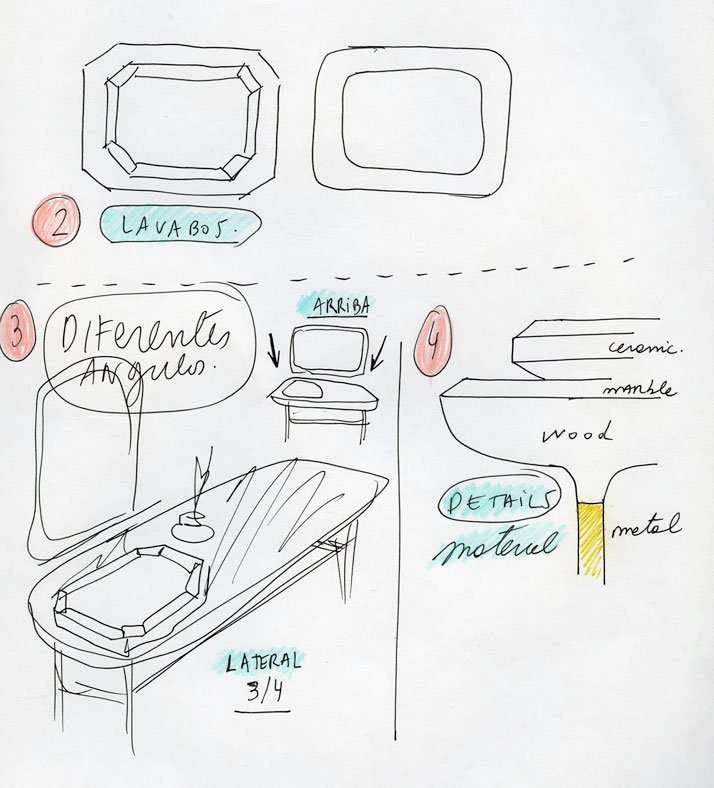 2
LAVABOS.
3
DIFerentes
ANgulos.
ARRIBA
4
ceramic.
marble
wood
DETAILS
material
metal
LATERAL
3/4